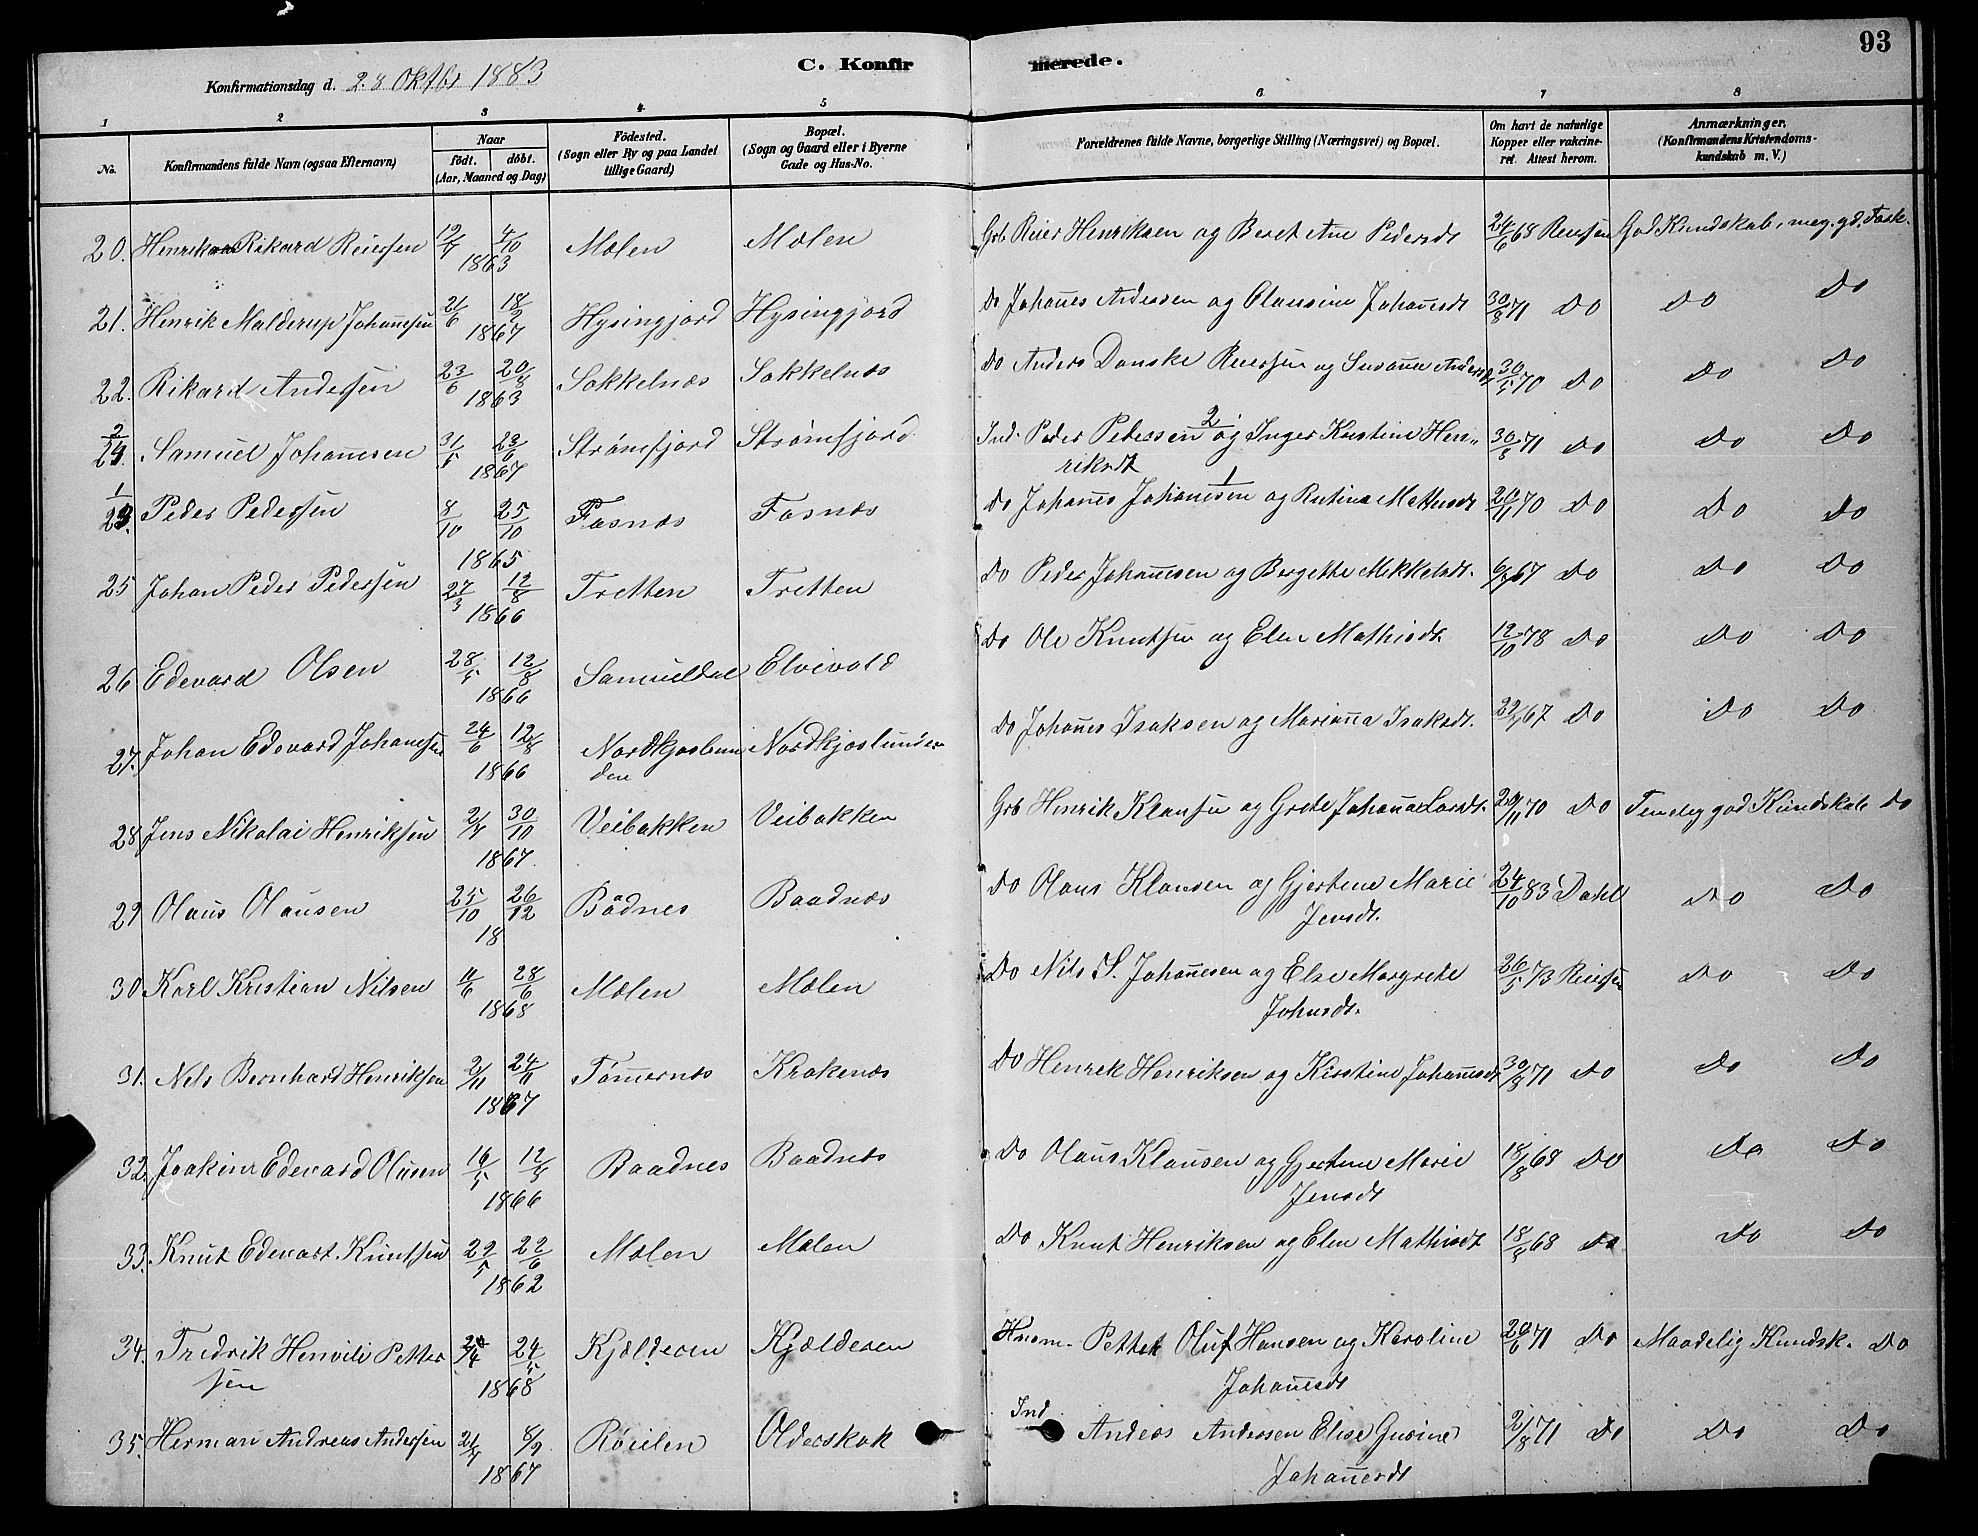 93
C. Konfirmerede.
Konfirmationsdag d. 28 Oktbr 1883
1 2 3 4 5 6 7 8
No. Konfirmandens fulde Navn (ogsaa Efternavn) Naar født. døbt. (Aar, Maaned og Dag) Fødested. (Sogn eller By og paa Landet tillige Gaard) Bopæl. (Sogn og Gaard eller i Byerne Gade og Hus-No. Forældrenes fulde Navne, borgerlige Stilling (Næringsvei) og Bopæl. Om havt de naturlige Kopper eller vakcineret. Attest herom. Anmærkninger. (Konfirmandens Kristendomskundskab m. V.)
20. Henrik Rikard Reiersen 12/7 4/10 1863 Mælen Mælen Grb Reier Henriksen og Beret Ane Pedersdt 24/6 68 Reiersen God Kundskab, meg. gd.
21. Henrik Malderup Johannesen 21/6 18/2 1867 Hysingjord Hysingjord Do Johannes Andersen og Olausine Johansdt 30/8 71 Do Do Do
22. Rikard Andersen 23/6 20/8 1863 Sakkelnæs Sakkelnæs Do Anders Danske Reiersen og Susanna Andersdt 30/5 70 Do Do Do
2/24. Samuel Johannesen 31/5 23/6 1867 Strømfjord Strømfjord Ind. Peder Pedersen 2 og Inger Kristine Henriksdt 30/8 71 Do Do Do
1/23. Peder Pedersen 8/10 25/10 1865 Fasnæs Fasnæs Do Johanes Johannesen 1 og Rutina Mathisdt 20/11 70 Do Do Do
25 Johan Peder Pedersen 27/3 12/8 1866 Tretten Tretten Do Peder Johannesen og Bergette Mikkelsdt. 67 Do Do Do
26 Edevard Olsen 28/5 12/8 1866 Samueldal Elvevold Do Ole Knutsen og Elen Mathisdt. 12/10 78 Do Do Do
27. Johan Edevard Johansen 24/6 12/8 1866 Nordkjoslunden Nordkjoslunden Do Johannes Isaksen og Marianna Isaksdt. 67 Do Do Do
28 Jens Nikolai Henriksen 2/7 30/10 1867. Veibakken Veibakken Grb Henrik Klausen og Grete Johanna Larsdt. 20/11 70 Do Temelig god Kundskab Do
29 Olaus Olausen 25/10 26/12 18 Bådnes Baadnæs Do Olaus Klausen og Gjertine Marie Jensdt. 24/10 83 Dahl Do Do
30 Karl Kristian Nilsen 11/6 28/6 1868 Mælen Mælen Do Nils S. Johannesen og Else Margrete Johnsdt. 26/5 73 Reiersen Do Do
31. Nels Bernhard Henriksen 2/11 24/11 1867 Tømernes Krakenæs Do Henrek Henriksen og Kirstine Johannesdt 30/8 71 Do Do Do
32. Joakim Edevard Olausen 16/5 12/8 1866 Baadnes Baadnæs Do Olaus Klausen og Gjertine Marie Jensdt 18/8 68 Do Do Do
33. Knut Edevart Knutsen 22/5 22/6 1862 Mælen Mælen Do Knut Henriksen og Elen Mathisdt 18/8 68 Do Do Do
34. Fredrik Henvili Pettersen 24/5 1868 Kjælderen Kjælderen Husm. Petter Oluf Hansen og Karoline Johannesdt 20/6 71 Do Maadelig Kundsk. Do
35. Herman Andreas Andersen 21/7 8/9 1867 Røielen Olderskak Ind Anders Andersen Elise Gurine Johannesdt 2/8 71 Do Do Do